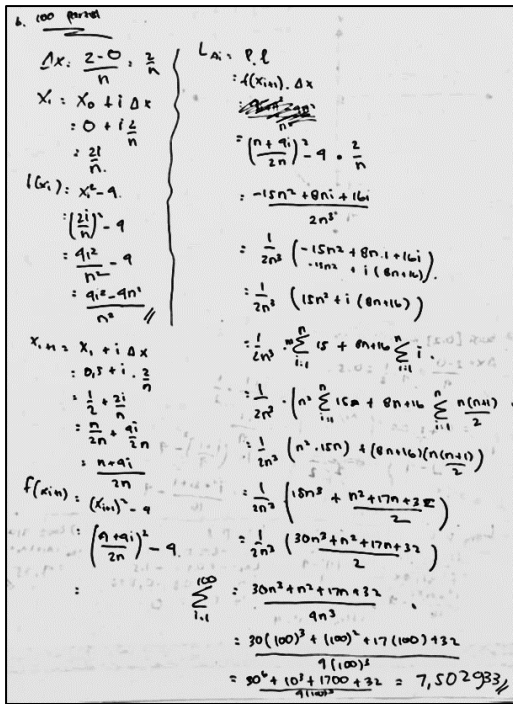 6. 100 partisi
Δx = 2-0/n = 2/n
Xi = X0 + i Δx
= 0 + i 2/n
= 2i/n.
f(xi) = xi² - 4.
= (2i/n)² - 4
= 4i²/n² - 4
= 4i² - 4n²/n² //
Xi+1 = X1 + i Δx
= 0,5 + i . 2/n
= 1/2 + 2i/n
= n/2n + 4i/2n
= n+4i/2n
f(xi+1) = (xi+1)² - 4
= (n+4i/2n)² - 4.
=
L Δi = P. l
= f(xi+1) . Δx
= (n+4i/2n)² - 4 • 2/n
= -15n² + 8ni + 16i/2n³
= 1/2n³ (-15n² + 8n.i + 16i)
-15n² + i (8n+16)
= 1/2n³ (15n² + i (8n+16))
= 1/2n³ . n Σ i=1 n 15 + 8n+16 Σ i=1 n i.
= 1/2n³ . (n² Σ i=1 n 15n + 8n+16 Σ i=1 n n(n+1)/2
= 1/2n³ (n² . 15n) + (8n+16)(n(n+1)/2)
= 1/2n³ (15n³ + n²+17n+32/2)
= 1/2n³ (30n³ + n² + 17n + 32/2)
Σ i=1 100 = 30n³ + n² + 17n + 32/4n³
= 30(100)³ + (100)² + 17(100) + 32/4(100)³
= 30⁶ + 10³ + 1700 + 32/4(100)³ = 7,502933 //